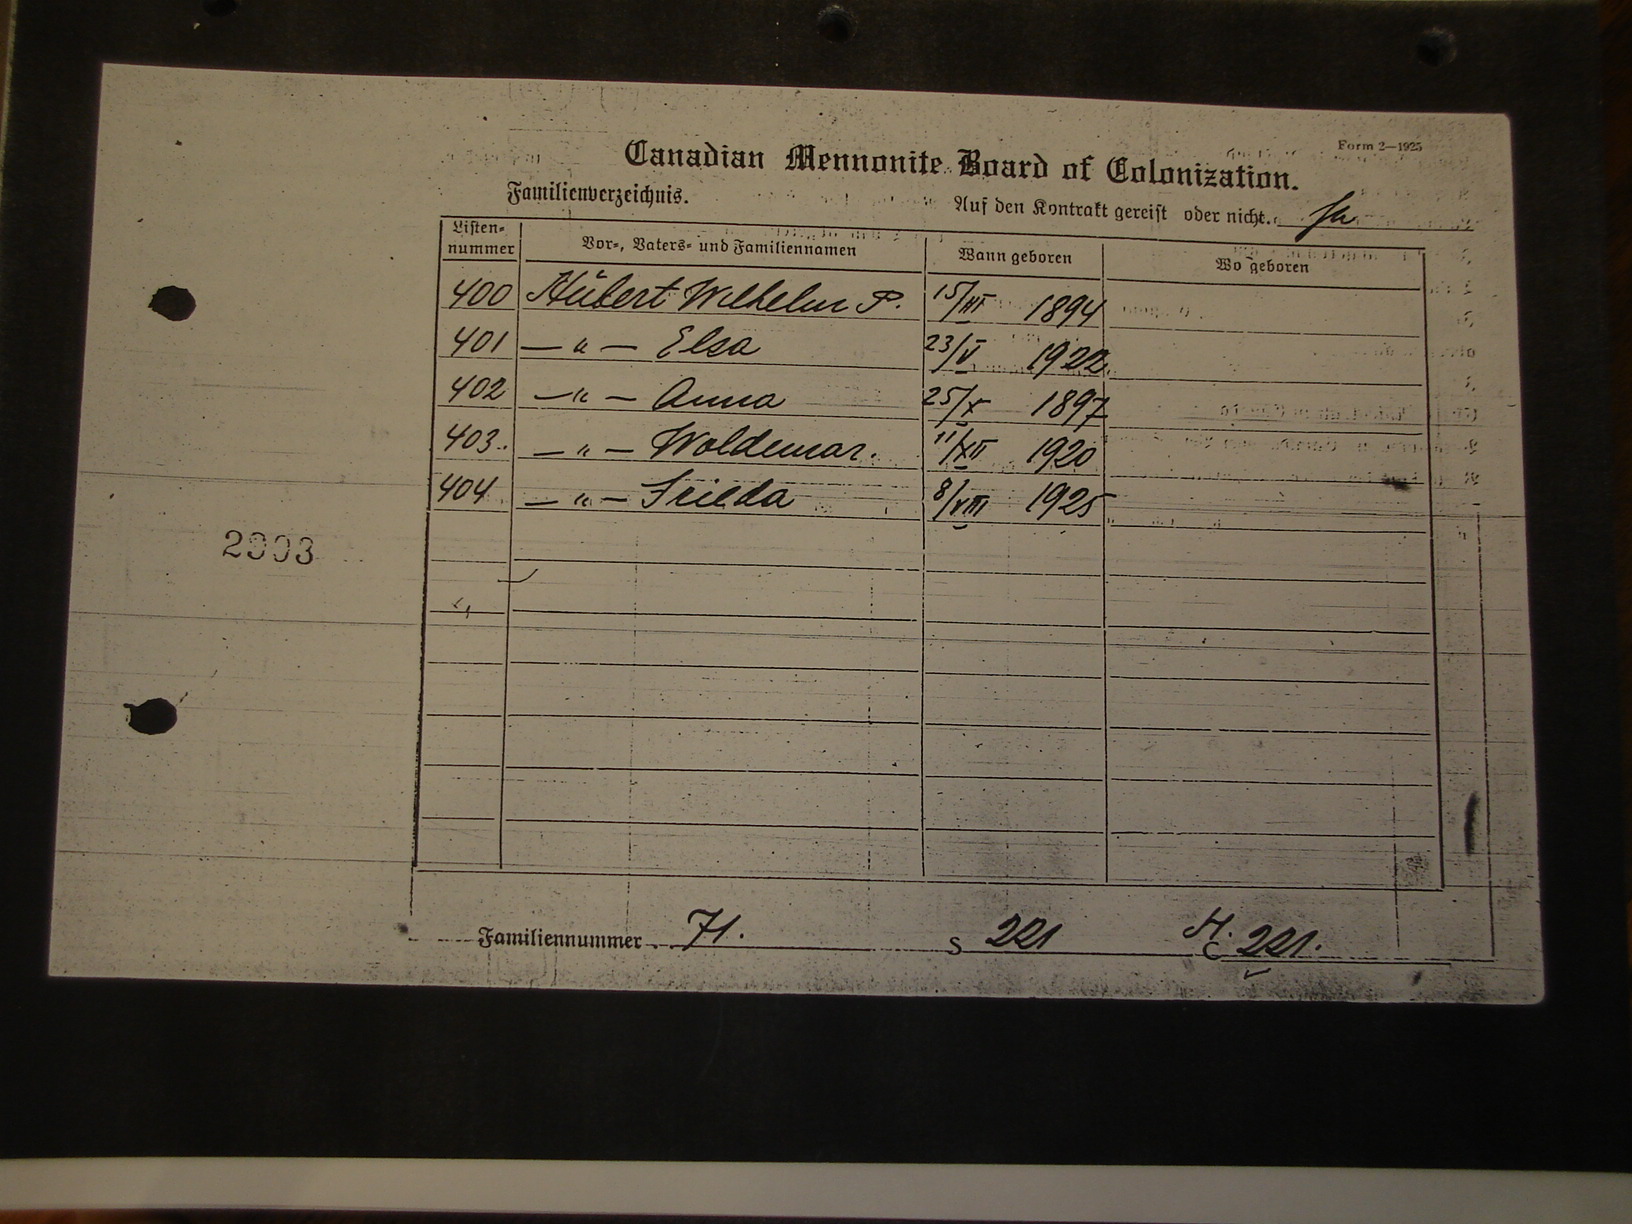 Form 2—1925
Canadian Mennonite Board of Colonization.
Familienverzeichnis. Auf den Kontrakt gereist oder nicht. Ja
Listen-nummer Vor-, Vaters- und Familiennamen Wann geboren Wo geboren
400 Hübert Wilhelm P. 15/III 1894
401 — " — Elsa 23/V 1922
402 — " — Anna 25/X 1897
403. — " — Woldemar. 11/XII 1920
404 — " — Frieda 8/VIII 1925
2003
Familiennummer 71. S 221 H. C 221.